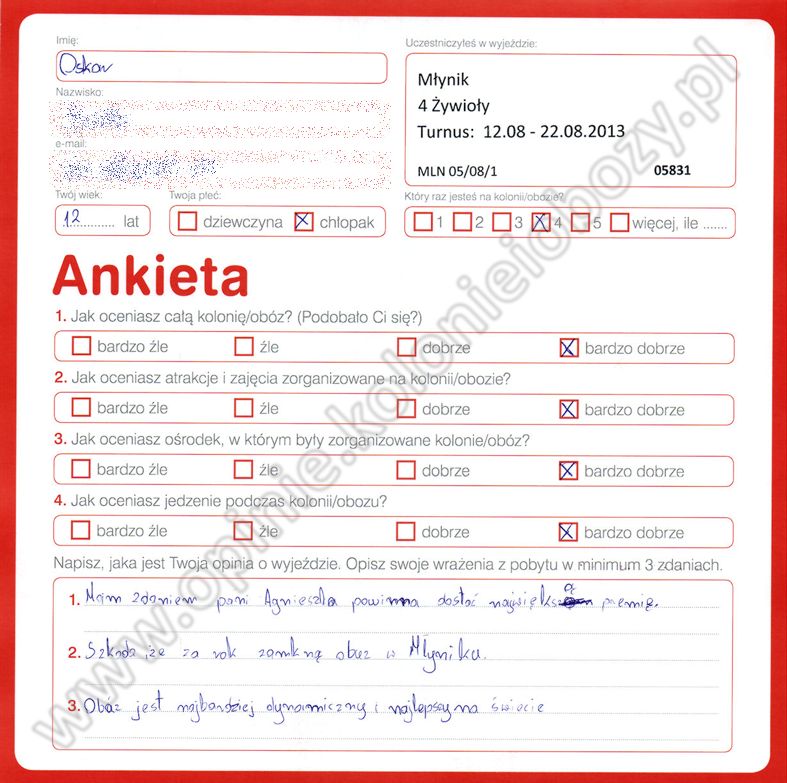 Imię:
Oskar
Nazwisko:
e-mail:
Twój wiek:
12 lat
Twoja płeć:
dziewczyna chłopak
Uczestniczyłeś w wyjeździe:
Młynik
4 Żywioły
Turnus: 12.08 - 22.08.2013
MLN 05/08/1 05831
Który raz jesteś na kolonii/obozie?
1 2 3 4 5 więcej, ile .......
Ankieta
1. Jak oceniasz całą kolonię/obóz? (Podobało Ci się?)
bardzo źle źle dobrze bardzo dobrze
2. Jak oceniasz atrakcje i zajęcia zorganizowane na kolonii/obozie?
bardzo źle źle dobrze bardzo dobrze
3. Jak oceniasz ośrodek, w którym były zorganizowane kolonie/obóz?
bardzo źle źle dobrze bardzo dobrze
4. Jak oceniasz jedzenie podczas kolonii/obozu?
bardzo źle źle dobrze bardzo dobrze
Napisz, jaka jest Twoja opinia o wyjeździe. Opisz swoje wrażenia z pobytu w minimum 3 zdaniach.
1. Moim zdaniem pani Agnieszka powinna dostać największą premię.
2. Szkoda że za rok zamkną obuz w Młyniku.
3. Obóz jest najbardziej dynamiczny i najlepszy na świecie
www.opinie.kolonieiobozy.pl